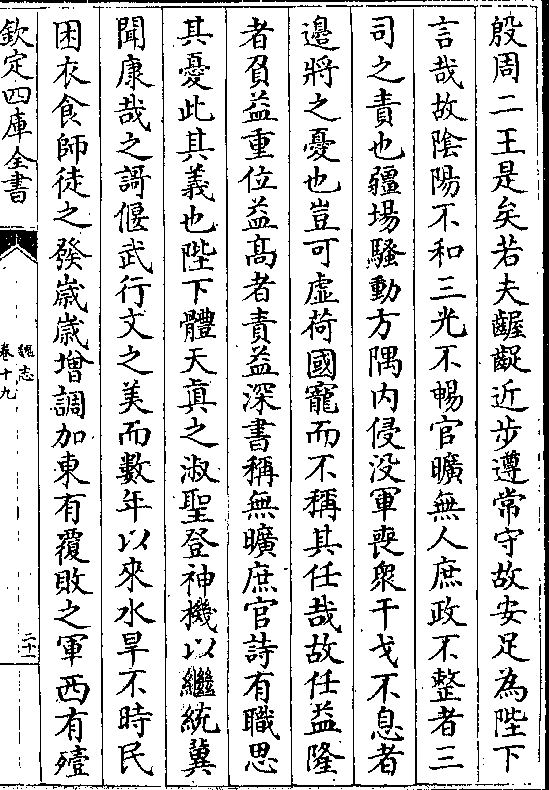 殷周二王是矣若夫齷齪近步遵常守故安足為陛下
言哉故隂陽不和三光不暢官曠無人庶政不整者三
司之責也疆場騷動方隅内侵没軍喪衆干戈不息者
邉將之憂也豈可虚荷國寵而不稱其任哉故任益隆
者負益重位益髙者責益深書稱無曠庶官詩有職思
其憂此其義也陛下體天真之淑聖登神機以繼統冀
聞康哉之謌偃武行文之美而數年以來水旱不時民
困衣食師徒之發歳歳增調加東有覆敗之軍西有殪
欽定四庫全書
魏志
卷十九
二十一